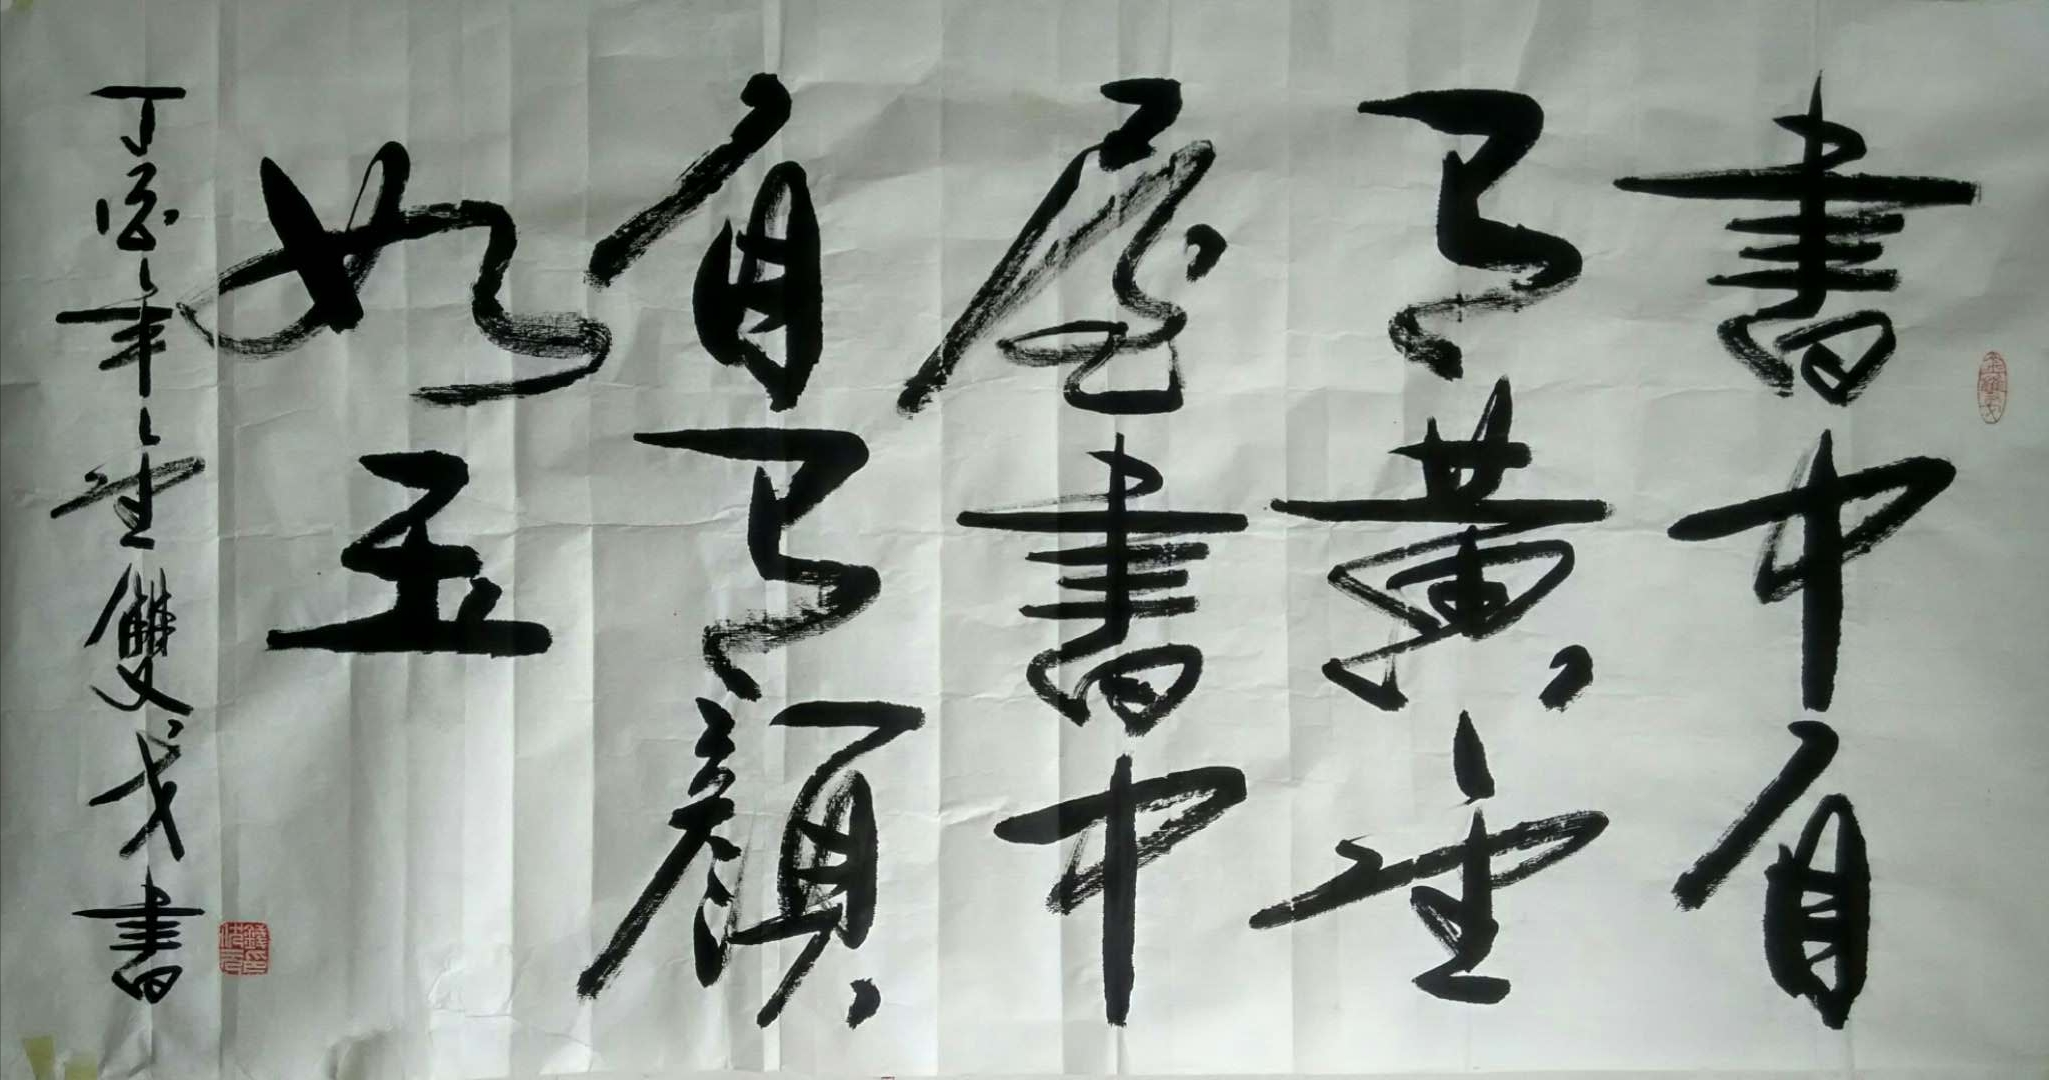 書中自
有黃金
屋書中
自有顏
如玉
丁酉年金雙戈書